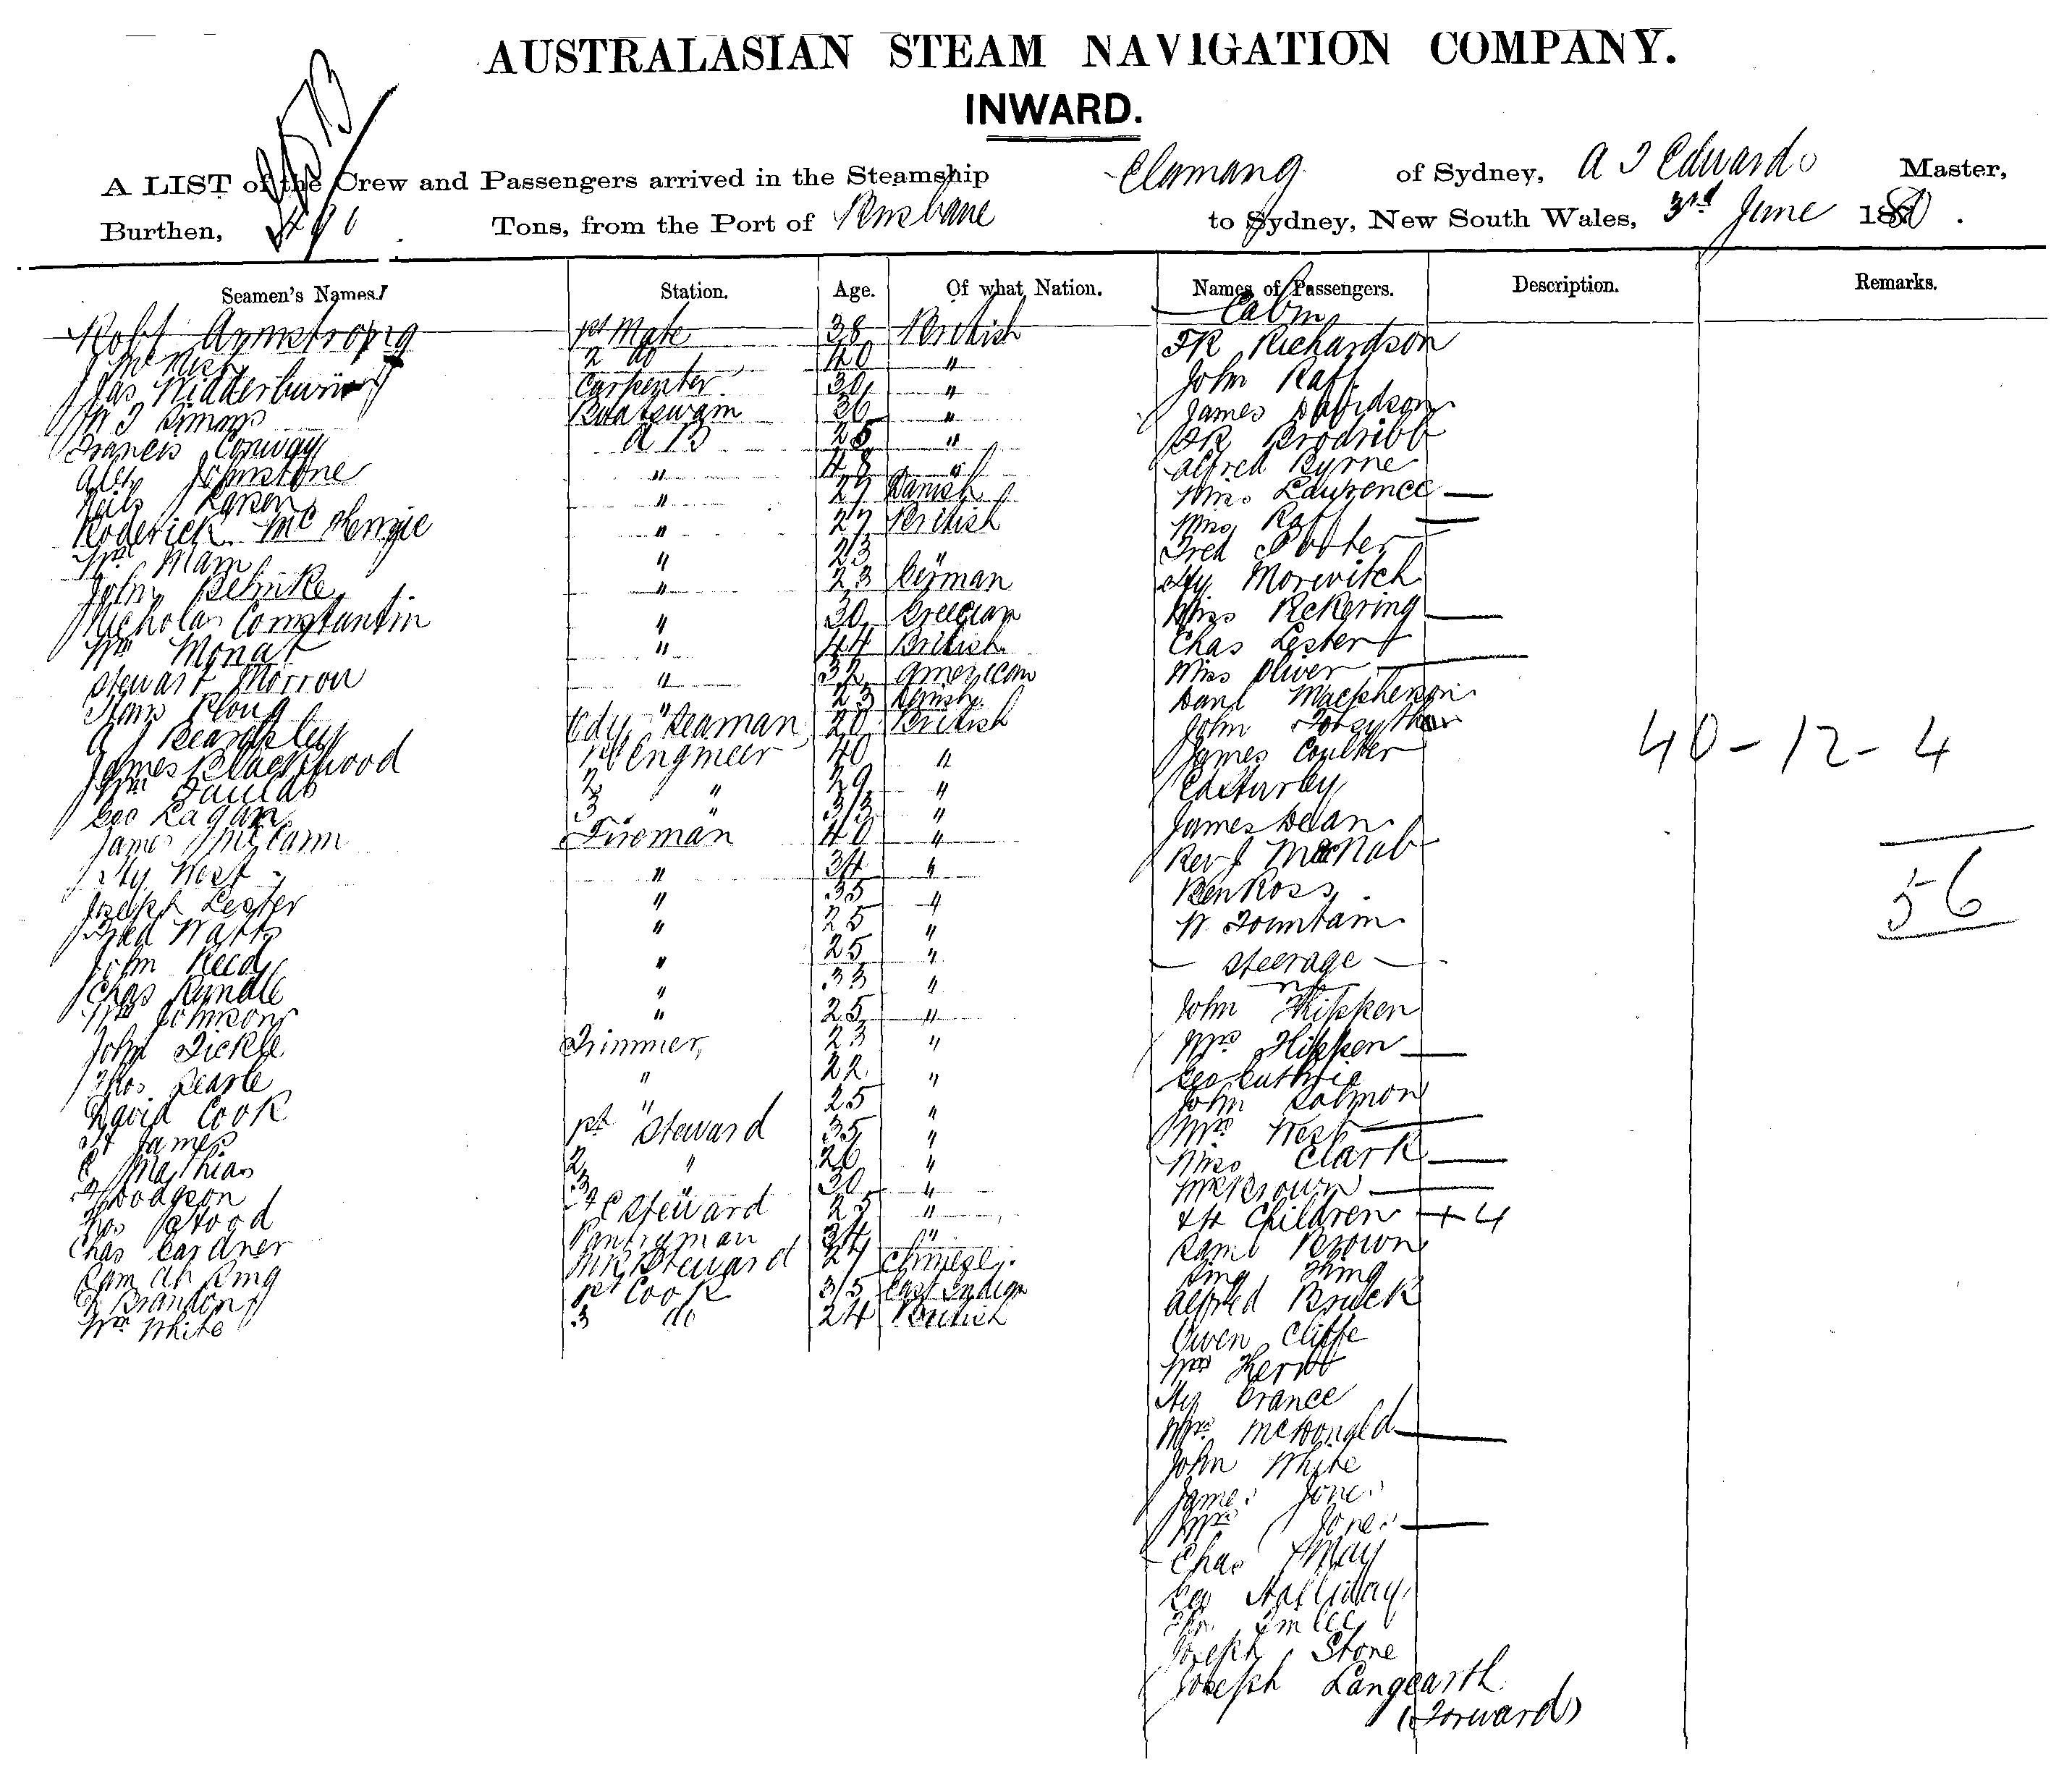 AUSTRALASIAN STEAM NAVIGATION COMPANY.
INWARD.
A LIST of the Crew and Passengers arrived in the Steamship Elamang of Sydney, A J Edwards Master,
Burthen, Tons, from the Port of Brisbane to Sydney, New South Wales, 3rd June 1880.
Seamen's Names. Station. Age. Of what Nation. Names of Passengers. Description. Remarks.
Cabin
Robt Armstrong 1st Mate 38 British FR Richardson
2 do 40 " John Raff
Jas Kidderburn Carpenter 30 " James Davidson
Simons Boatswain 36 " Brodribb
Francis Conway A B 25 " Alfred Byrne
Alex Johnstone " 48 " Miss Laurence —
Neils Larsen " 27 Danish Raff —
Roderick McKenzie " 27 British Fred Potter
Wm Mam " 23 Hy Morwitch
John Behnke " 23 German Miss Pickering —
Nicholas Constantin " 30 Greecian Chas Lester
Wm Monat " 44 British Miss Oliver —
Stewart Morrow " 32 American Danl Macpherson
Hans Ploug " 23 Danish John Forsyther
A J Beardsley Ody Seaman 20 British James Coulter
James Blackwood 1st Engineer 40 " Ed Hurley
Wm 2 " 29 " James Dean
Geo Eagan 3 " 33 " Rev J McNab
James McCann Fireman 40 " Ben Ross
Hy West " 34 " W Fountain
Joseph Lester " 35 " — Steerage —
Fred Watts " 25 " John Hipken
John Reed " 25 " Mrs Hipken —
Chas Rundle " 33 " Geo Guthrie
Wm Johnson " 25 " John Salmon
John Tickle Trimmer 23 " Mrs West —
Thos Searle " 22 " Miss Clark —
David Cook " 25 " Mrs Brown —
James 1st Steward 35 " & 4 Children + 4
C Mathias 2 " 26 " Saml Brown
Hodgson 3 " 30 " Sing Hing
Thos Stood F C Steward 25 " Alfred Bruck
Chas Gardner Pantryman 24 " Owen Cliffe
Sam Ah King Steward 27 Chinese
Brandon 1st Cook 35 East Indian Hy Orance
Wm White 3 do 24 British Mrs McDonald —
John White
James Jones
Mrs Jones —
Chas May
Geo Halliday
Joseph Stone
Joseph Langearth
(Forward)
40-12-4
56